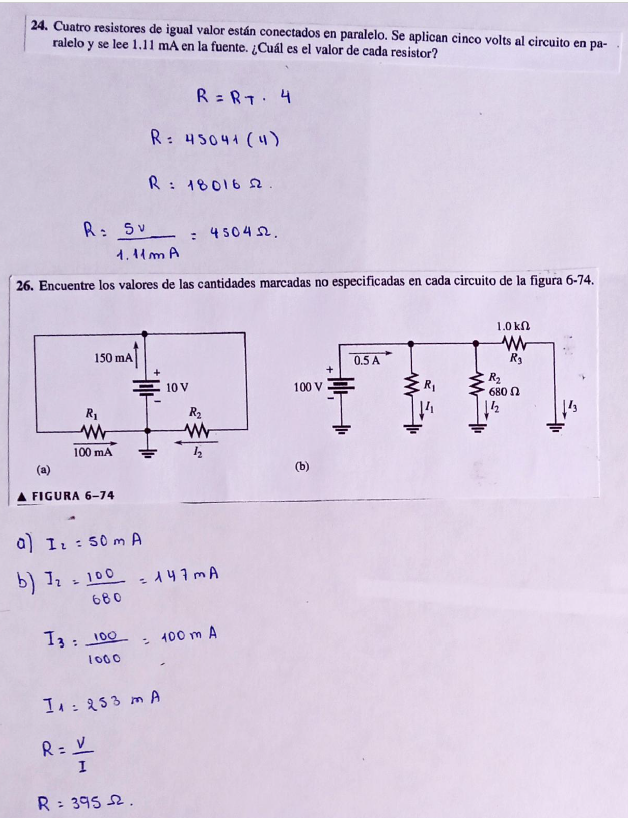 24. Cuatro resistores de igual valor están conectados en paralelo. Se aplican cinco volts al circuito en pa-
ralelo y se lee 1.11 mA en la fuente. ¿Cuál es el valor de cada resistor?
R = RT · 4
R = 45041 (4)
R = 18016 Ω.
R = 5v / 1.11mA = 4504 Ω.
26. Encuentre los valores de las cantidades marcadas no especificadas en cada circuito de la figura 6-74.
150 mA
+
10 V
−
R1
100 mA
R2
I2
(a)
100 V
+
−
0.5 A
R1
I1
R2
680 Ω
I2
1.0 kΩ
R3
I3
(b)
▲ FIGURA 6–74
a) I2 = 50 mA
b) I2 = 100 / 680 = 147 mA
I3 = 100 / 1000 = 100 mA
I1 = 253 mA
R = V / I
R = 395 Ω.